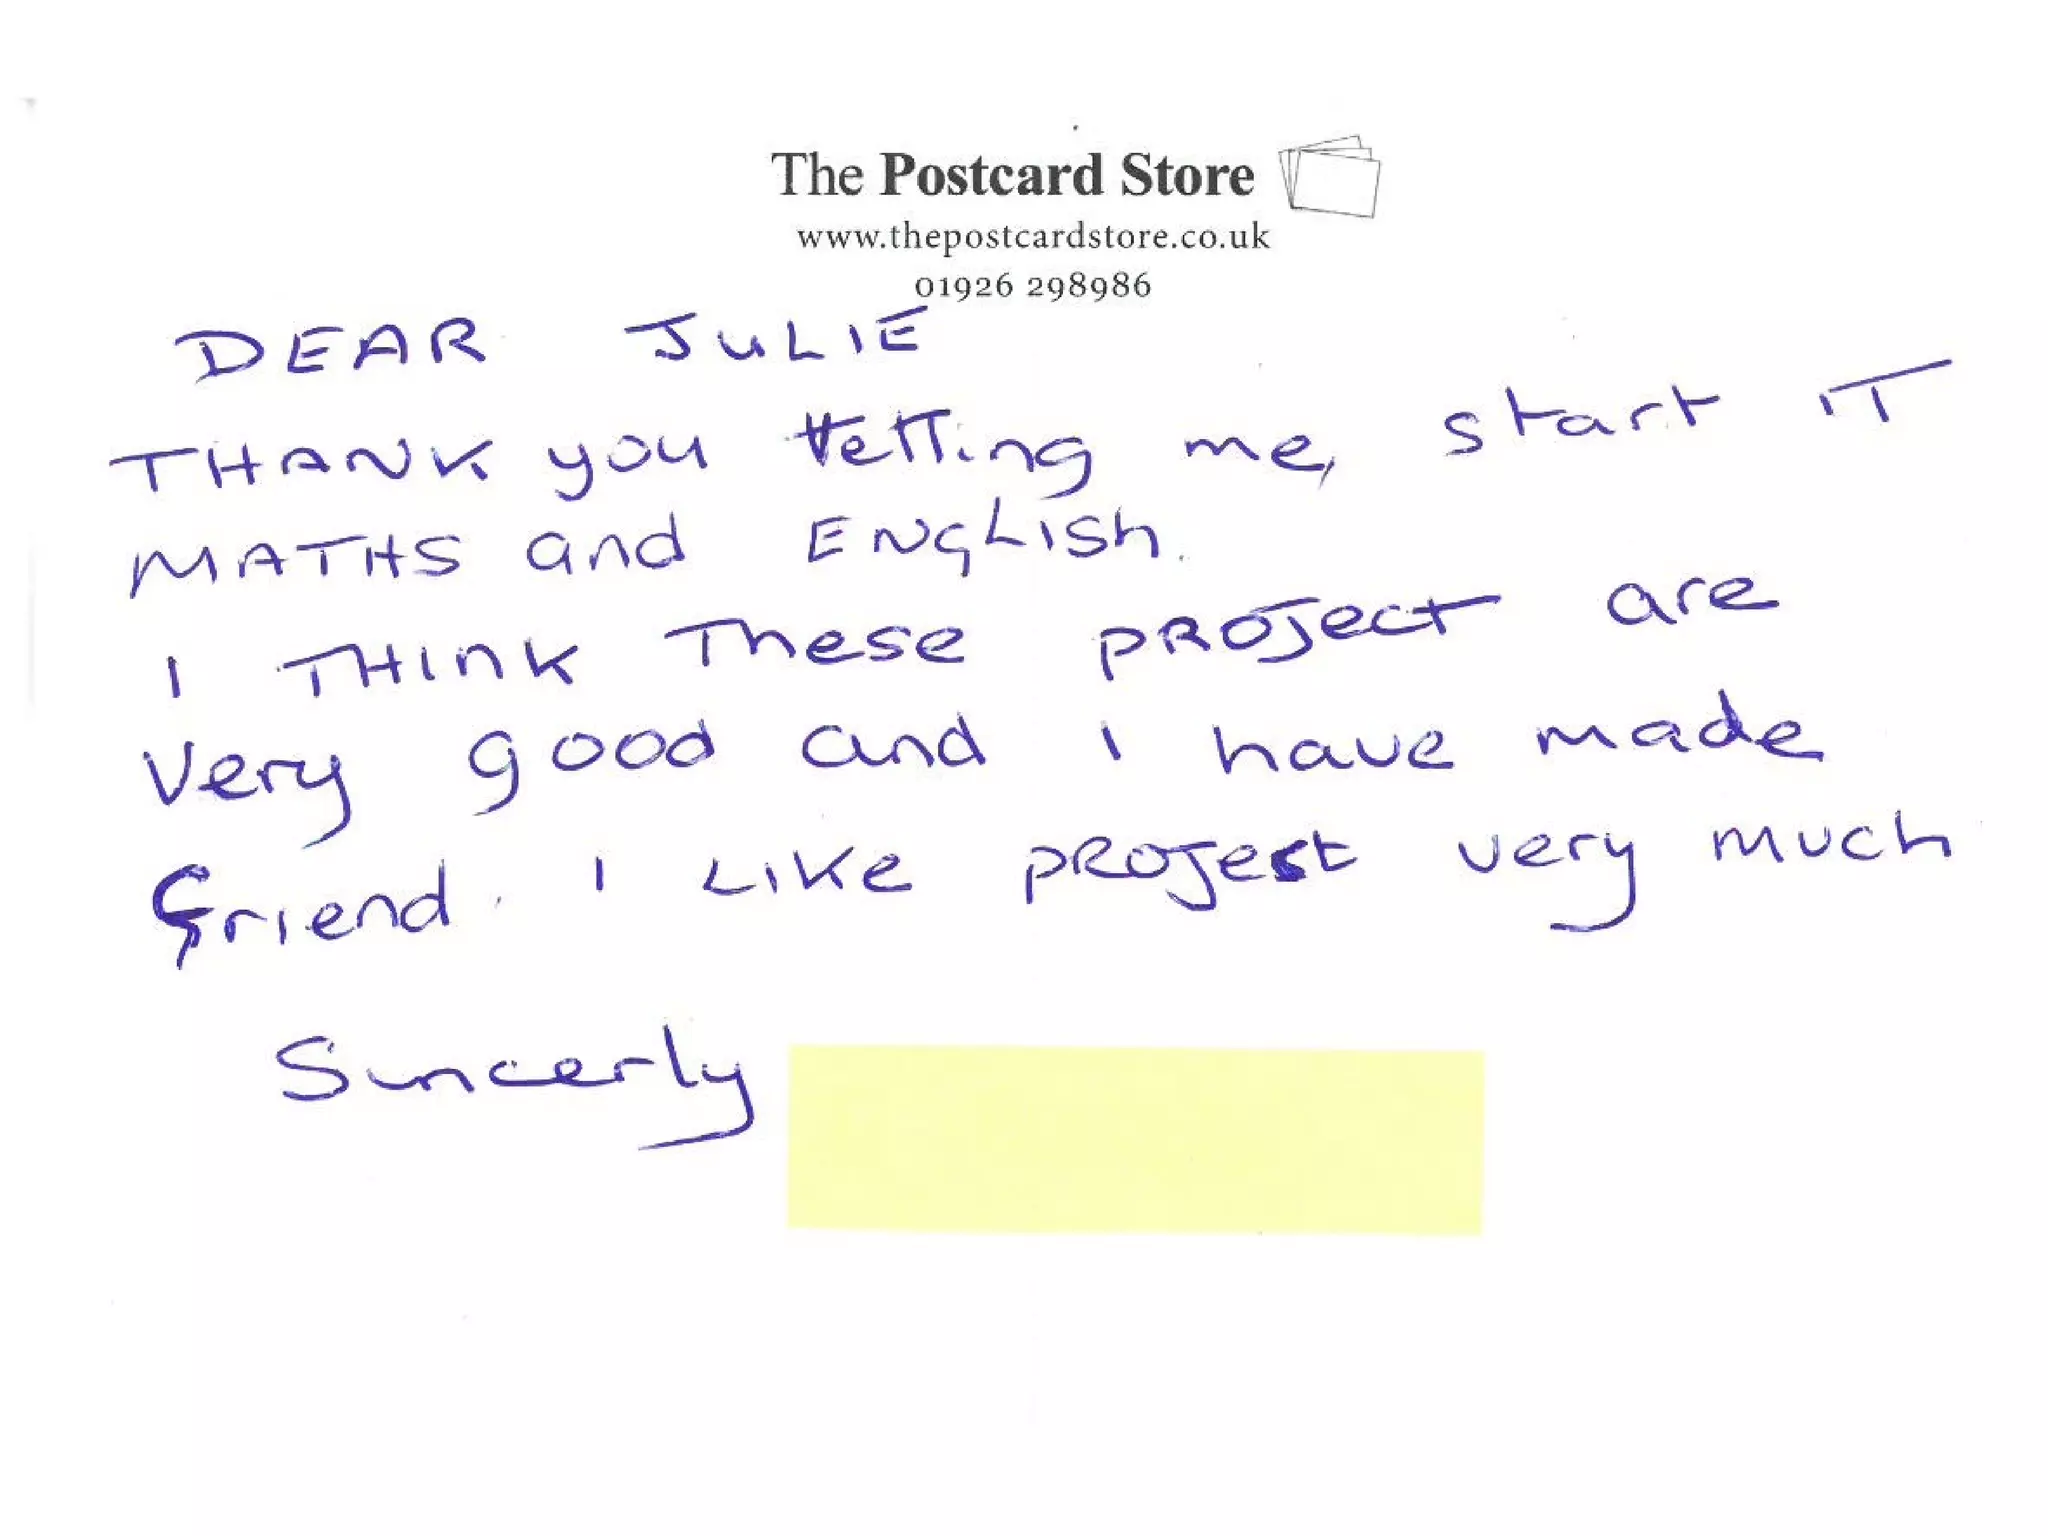 The Postcard Store
www.thepostcardstore.co.uk
01926 298986
DEAR JULIE
THANK you tetting me, start IT
MATHS and ENGLISh.
I THInK These PROJect are
Very good and I have made
friend. I LIKe PROJect very much
Sincerly